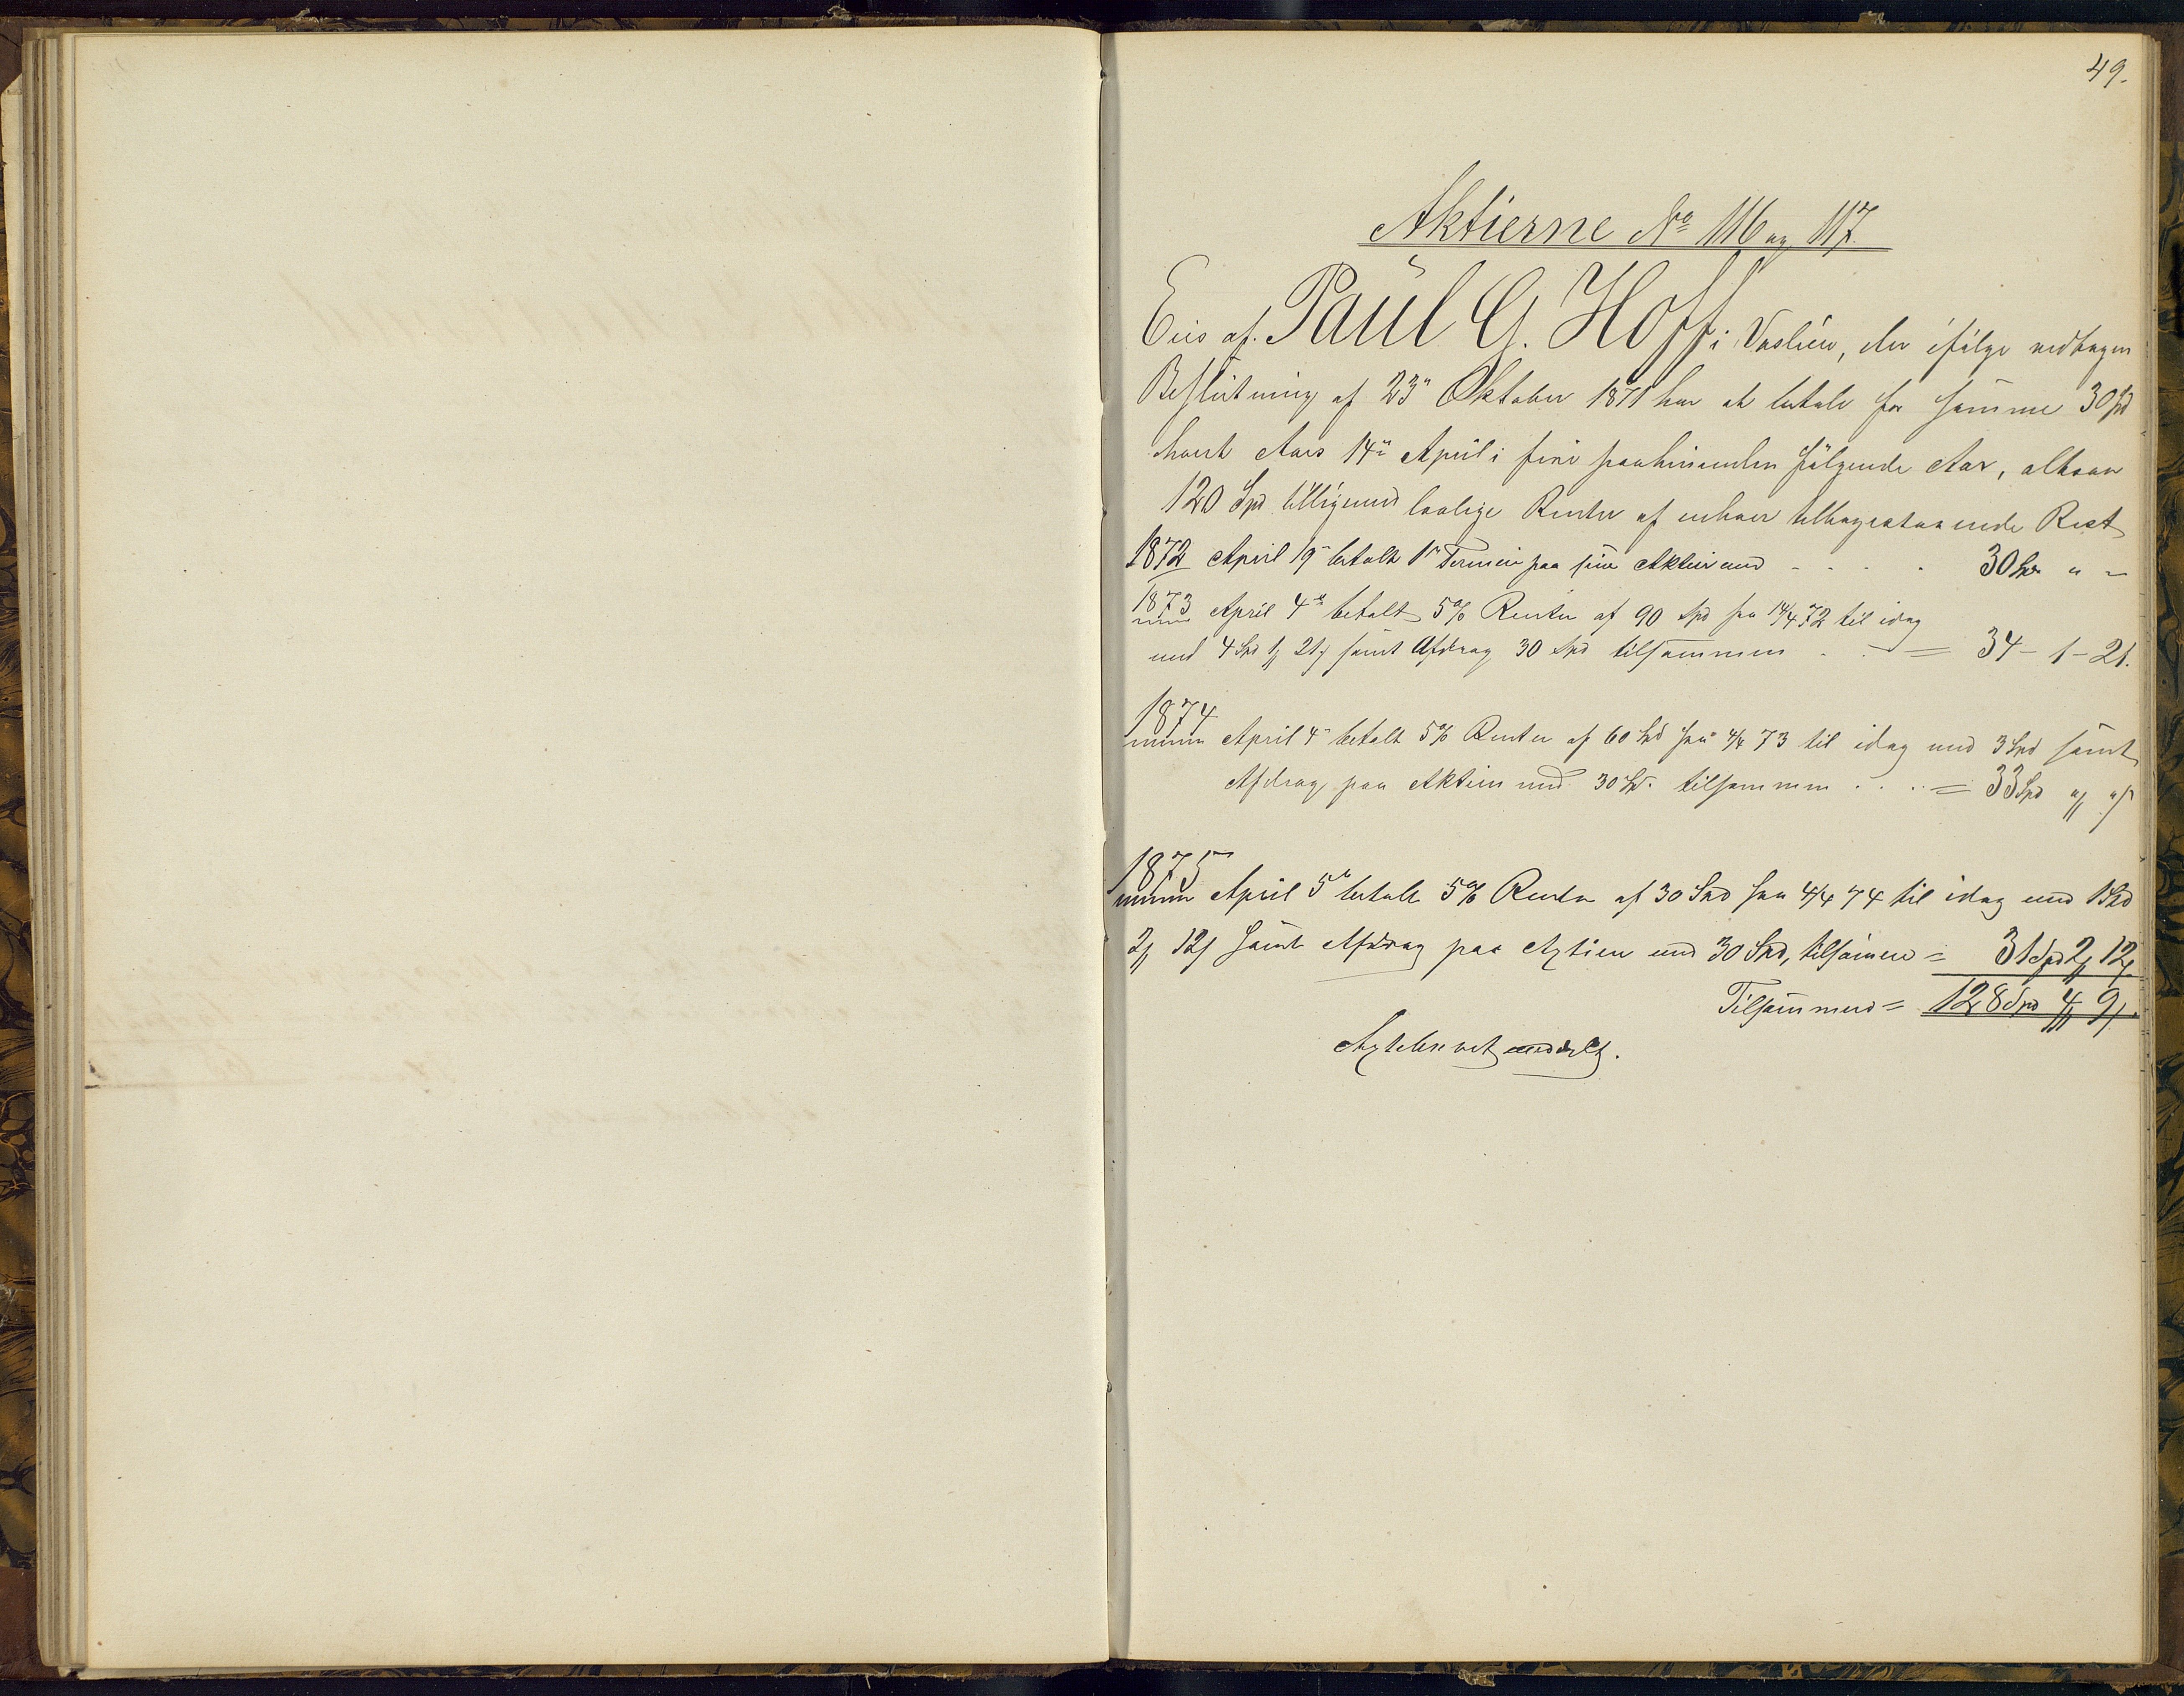 49.
Aktierne No 116 og 117.
Eies af Paul G. Hoff i Vaslien, der ifølge vedtagen
Beslutning af 23de Oktober 1871 har at betale for samme 30 Spd
hvert Aars 14de April i fire paahinanden følgende Aar, altsaa
120 Spd tilligemed lovlige Renter af enhver tilbagestaaende Rest
1872 April 19 betalt 1ste Termin paa sine Aktier med - - - - 30 Spd " "
1873 April 4de betalt 5% Renter af 90 Spd fra 14/4 72 til idag
med 4 Spd 1 21 samt Afdrag 30 Spd tilsammen - - = 34 - 1 - 21.
1874
April 4 betalt 5% Renter af 60 Spd fra 4/4 73 til idag med 3 Spd samt
Afdrag paa Aktien med 30 Spd. tilsammen . . . = 33 Spd " "
1875
April 5te betalt 5% Renter af 30 Spd fra 4/4 74 til idag med 1 Spd
2 12 samt Afdrag paa Agtien med 30 Spd, tilsamen = 31 Spd 2 12
Tilsammens = 128 Spd 4 9.
Agtebrevet meddelt.